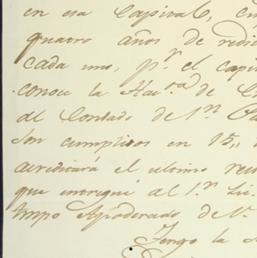 en esa Capital, 
quatro años de redi
cada uno, p.r el capi
conoce la Haz.da de
al Contado de S.n
son cumplidos en 15,,
acreditará el ultimo rec
que entregué al S.r Lic.
tmpo Apoderado de V.
Tengo la